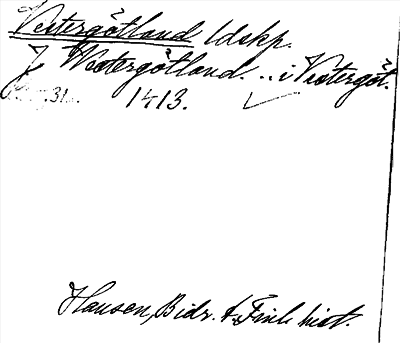 Vestergötland ldskp.
J Westergötland. .. i Vestergöt.
31. 1413. ✓
Hausen, Bidr. t. Finl. hist.